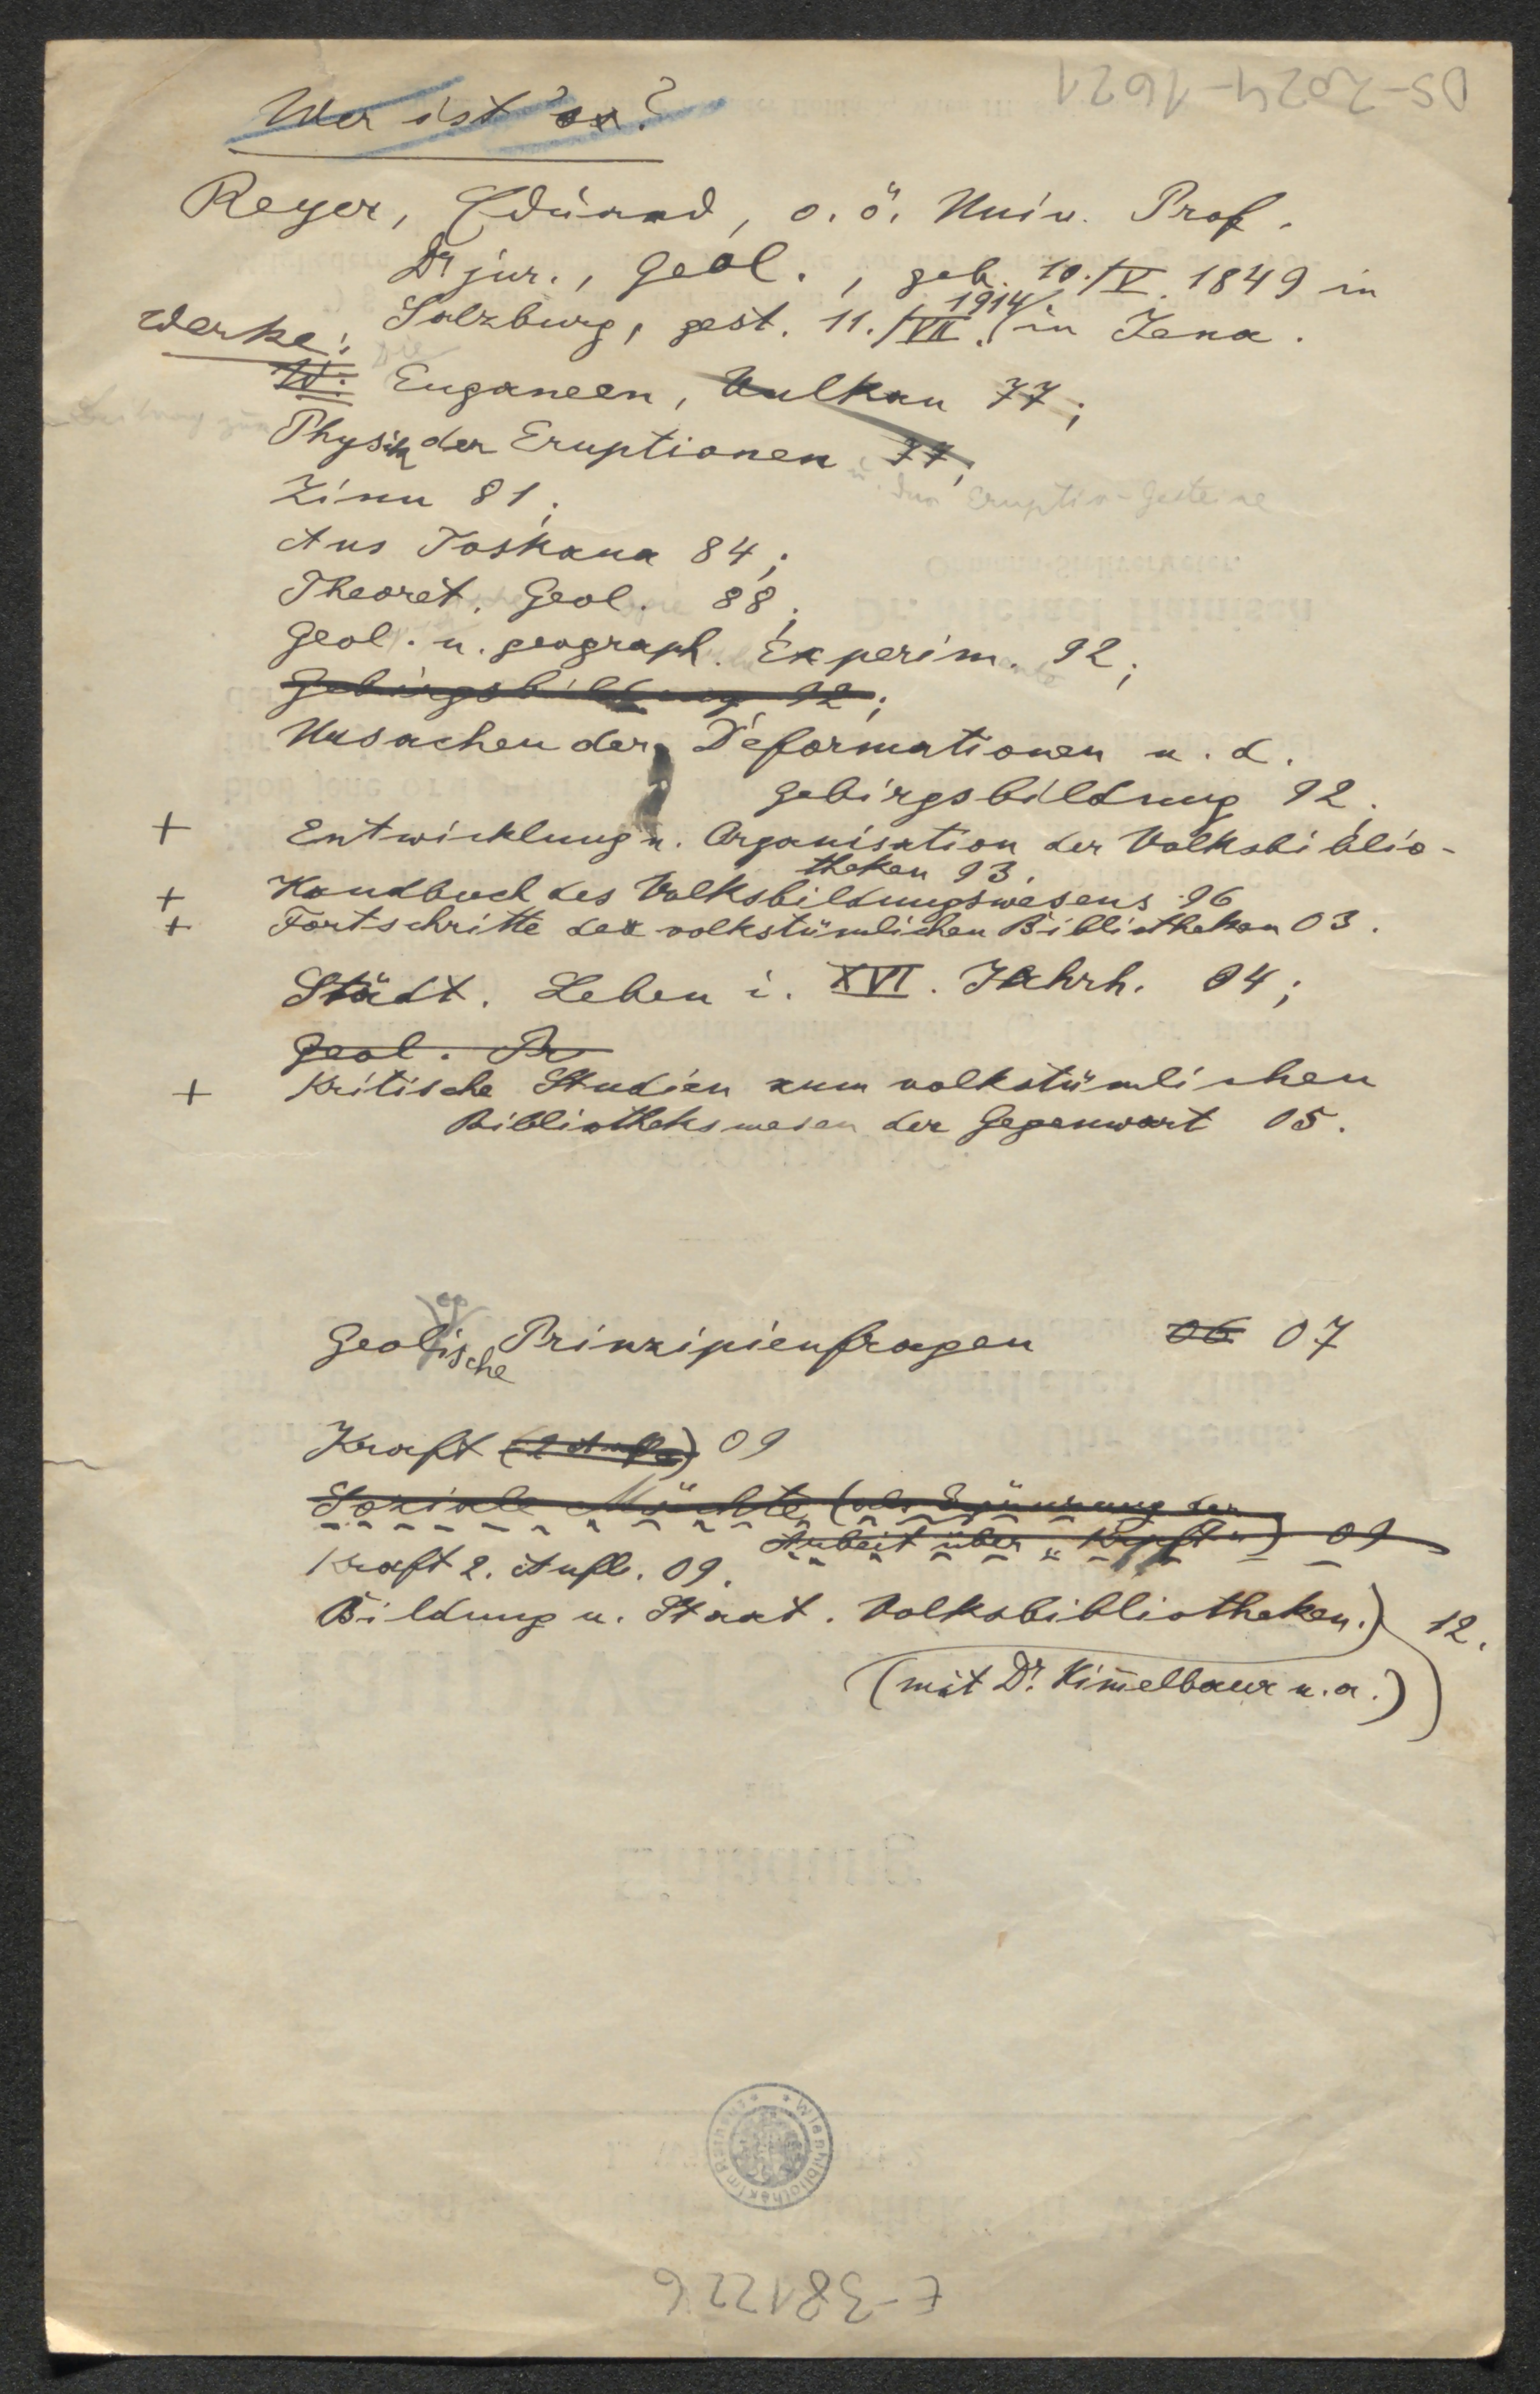 DS-2024-1621
Wer ist's?
Reyer, Eduard, o. ö. Univ. Prof.
Dr jur., Geol., geb. 10./V. 1849 in
Salzburg, gest. 11./VII. 1914 in Jena.
Werke:
W: Die Euganeen, Vulkan 77;
Physik der Eruptionen 77,
u. der Eruptiv-Gesteine
Zinn 81;
Aus Toskana 84;
Theoret. Geol. 88;
Geol. u. geograph. Experim. 92;
Gebirgsbildung 92;
Ursachen der Deformationen u. d.
Gebirgsbildung 92;
+ Entwicklung u. Organisation der Volksbiblio-
theken 93.
+ Handbuch des Volksbildungswesens 96
+ Fortschritte der volkstümlichen Bibliotheken 03.
Städt. Leben i. XVI. Jahrh. 04;
Geol. Pr
+ Kritische Studien zum volkstümlichen
Bibliothekswesen der Gegenwart 05.
Geologische Prinzipienfragen 06 07
Kraft (2 Aufl.) 09
Soziale Mächte (als Ergänzung der
Arbeit über „Kraft") 09
Kraft 2. Aufl. 09.
Bildung u. Staat. Volksbibliotheken.) 12.
(mit Dr. Him̄elbaur u. a.)
* Wienbibliothek im Rathaus *
E-381226